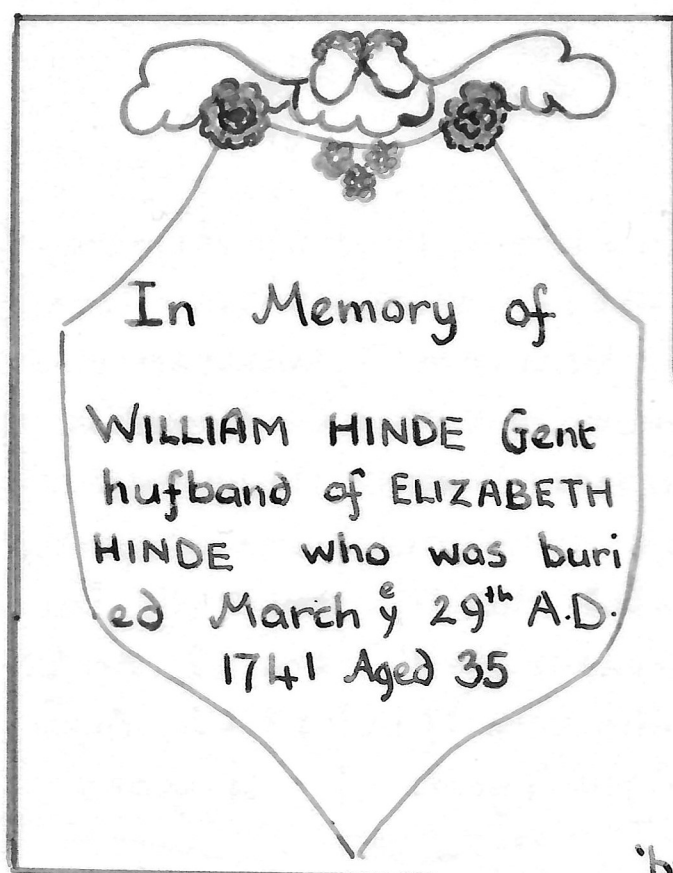 In Memory of
WILLIAM HINDE Gent
hufband of ELIZABETH
HINDE who was buri
ed March yᵉ 29ᵗʰ A.D.
1741 Aged 35